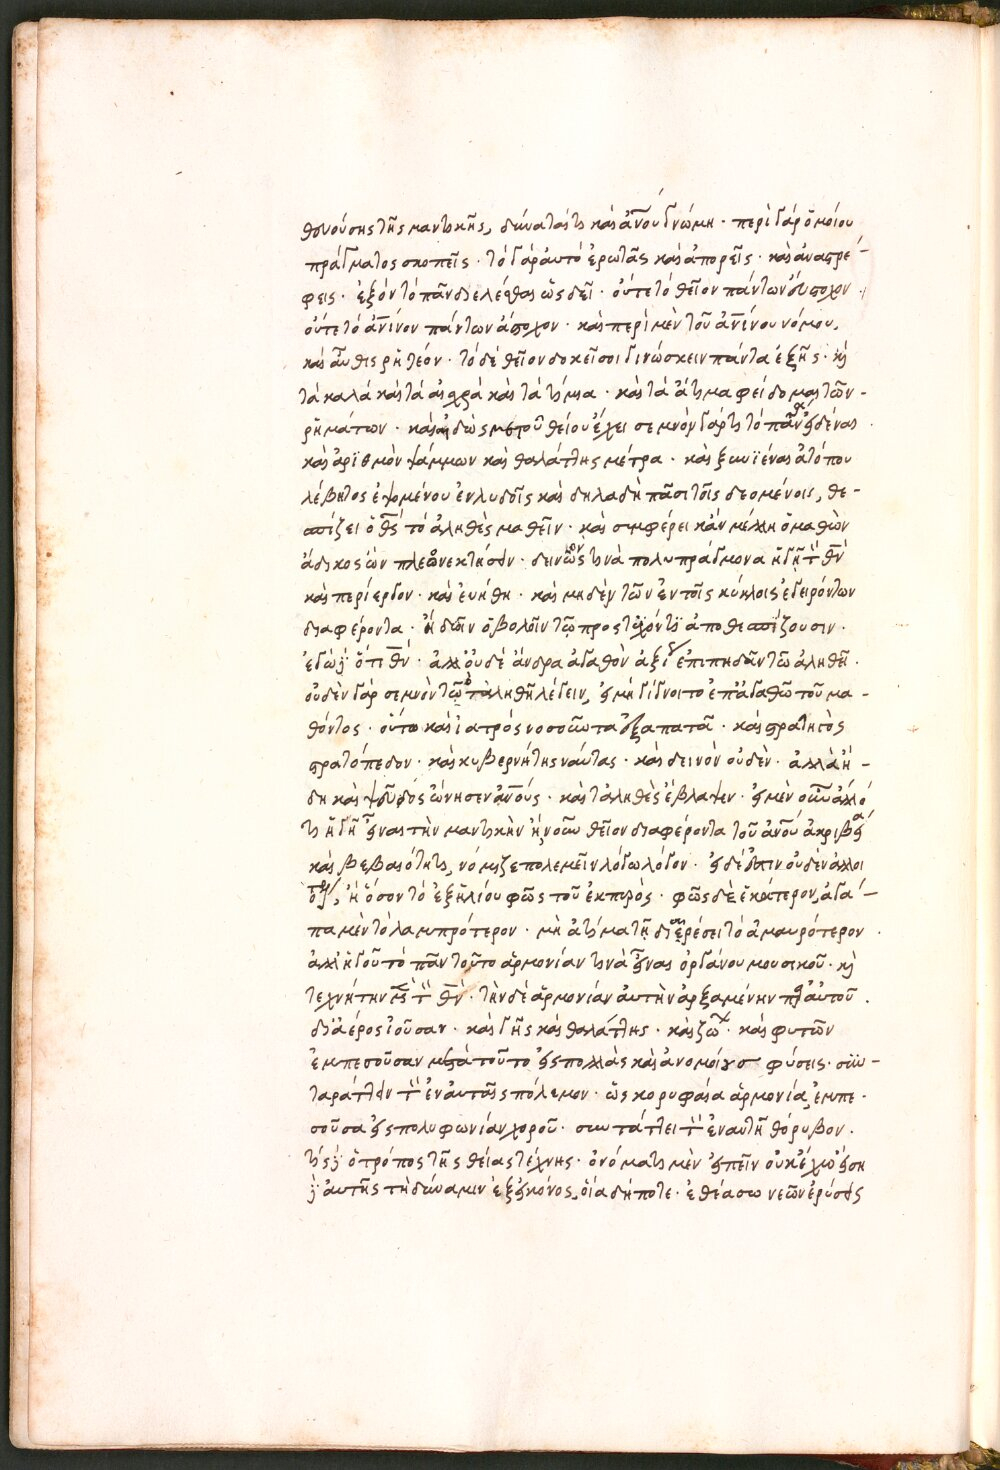 θουούσης τῆς μαντικῆς, δύναταί τι καὶ ἀνου γνώμη · περὶ γὰρ ὁμοίου
πράγματος σκοπεῖς · τὸ γὰρ αὐτὸ ἐρωτᾶς καὶ ἀπορεῖς · καὶ ἀναστρέ-
φεις · ἐξὸν τὸ πᾶν διελέσθαι ὡς δεῖ · οὔτε τὸ θεῖον πάντων εὔστοχον ·
οὔτε τὸ ἀνινον πάντων ἄστοχον · καὶ περὶ μὲν τοῦ ἀνινου νόμου,
καὶ αὖθις ῥητέον · τὸ δὲ θεῖον δοκεῖ σοι γινώσκειν πάντα ἑξῆς · κỳ
τὰ καλὰ καὶ τὰ αἰσχρὰ καὶ τὰ τίμια · καὶ τὰ ἄτιμα φείδομαι τῶν
ῥημάτων · καὶ αἰδὼς με τοῦ θείου ἔχει σεμνὸν γάρ τι τὸ πάντα εἰδέναι ·
καὶ ἀριθμὸν ψάμμων καὶ θαλάττης μέτρα · καὶ ξυνϊέναι ἀτόπου
λέβητος ἑψομένου ἐν λυδοῖς καὶ δηλαδὴ πᾶσι τοῖς δεομένοις, θε-
σπίζει ὁ θς τὸ ἀληθὲς μαθεῖν · καὶ συμφέρει κἂν μέλλῃ ὁ μαθὼν
ἄδικος ὢν πλεονεκτήσειν · δεινῶς τινὰ πολυπράγμονα ἡγῇ τὸν θν
καὶ περίεργον · καὶ εὐήθη · καὶ μηδὲν τῶν ἐν τοῖς κύκλοις ἀγειρόντων
διαφέροντα · οἳ δυοῖν ὀβολοῖν τῷ προστυχόντι ἀποθεσπίζουσιν ·
ἐγὼ δ' ὅτι θν · ἀλλ' οὐδὲ ἄνδρα ἀγαθὸν ἀξιῶ ἐπιπηδᾶν τῷ ἀληθεῖ ·
οὐδὲν γὰρ σεμνὸν τῷ τὸ ἀληθῆ λέγειν, εἰ μὴ γίγνοιτο ἐπ' ἀγαθῷ τοῦ μα-
θόντος · οὕτω καὶ ἰατρὸς νοσοῦντα ἐξαπατᾷ · καὶ στρατηγὸς
στρατόπεδον · καὶ κυβερνήτης ναύτας · καὶ δεινὸν οὐδὲν · ἀλλὰ ἤ-
δη καὶ ψεῦδος ὤνησεν ἀνους · καὶ τἀληθὲς ἔβλαψεν · εἰ μὲν οὖν ἄλλό
τι ἡγῇ εἶναι τὴν μαντικὴν ἢ νοῦν θεῖον διαφέροντα τοῦ ἀνου ἀκριβείᾳ
καὶ βεβαιότητι, νόμιζε πολεμεῖν λόγῳ λόγον · εἰ δέ ἐστιν οὐδὲν ἄλλοι
ον, ἢ ὅσον τὸ ἐξ ἡλίου φῶς τοῦ ἐκ πυρὸς · φῶς δὲ ἑκάτερον, ἀγά-
πα μὲν τὸ λαμπρότερον · μὴ ἀτίμα τῇ διαιρέσει τὸ ἀμαυρότερον ·
ἀλλ' ἡγοῦ τὸ πᾶν τοῦτο ἁρμονίαν τινὰ εἶναι ὀργάνου μουσικοῦ · κỳ
τεχνήτην μὲν τὸν θν · τὴν δὲ ἁρμονίαν αὐτὴν ἀρξαμένην παρ' αὐτοῦ ·
δι' ἀέρος ἰοῦσαν · καὶ γῆς καὶ θαλάττης · καὶ ζώων · καὶ φυτῶν
ἐμπεσοῦσαν μετὰ τοῦτο εἰς πολλὰς καὶ ἀνομοίους φύσεις · συν-
ταράττειν τὸν ἐν αὐταῖς πόλεμον · ὡς κορυφαία ἁρμονία, ἐμπε-
σοῦσα εἰς πολυφωνίαν χοροῦ · συντάττει τὸν ἐν αὐτῇ θόρυβον ·
τίς δ' ὁ τρόπος τῆς θείας τέχνης · ὀνόματι μὲν εἰπεῖν οὐκ ἔχω εἴσῃ
δ' αὐτῆς τὴν δύναμιν ἐξ εἰκόνος, οἵα δήποτε · ἐθεάσω νεῶν ἐρύσεις